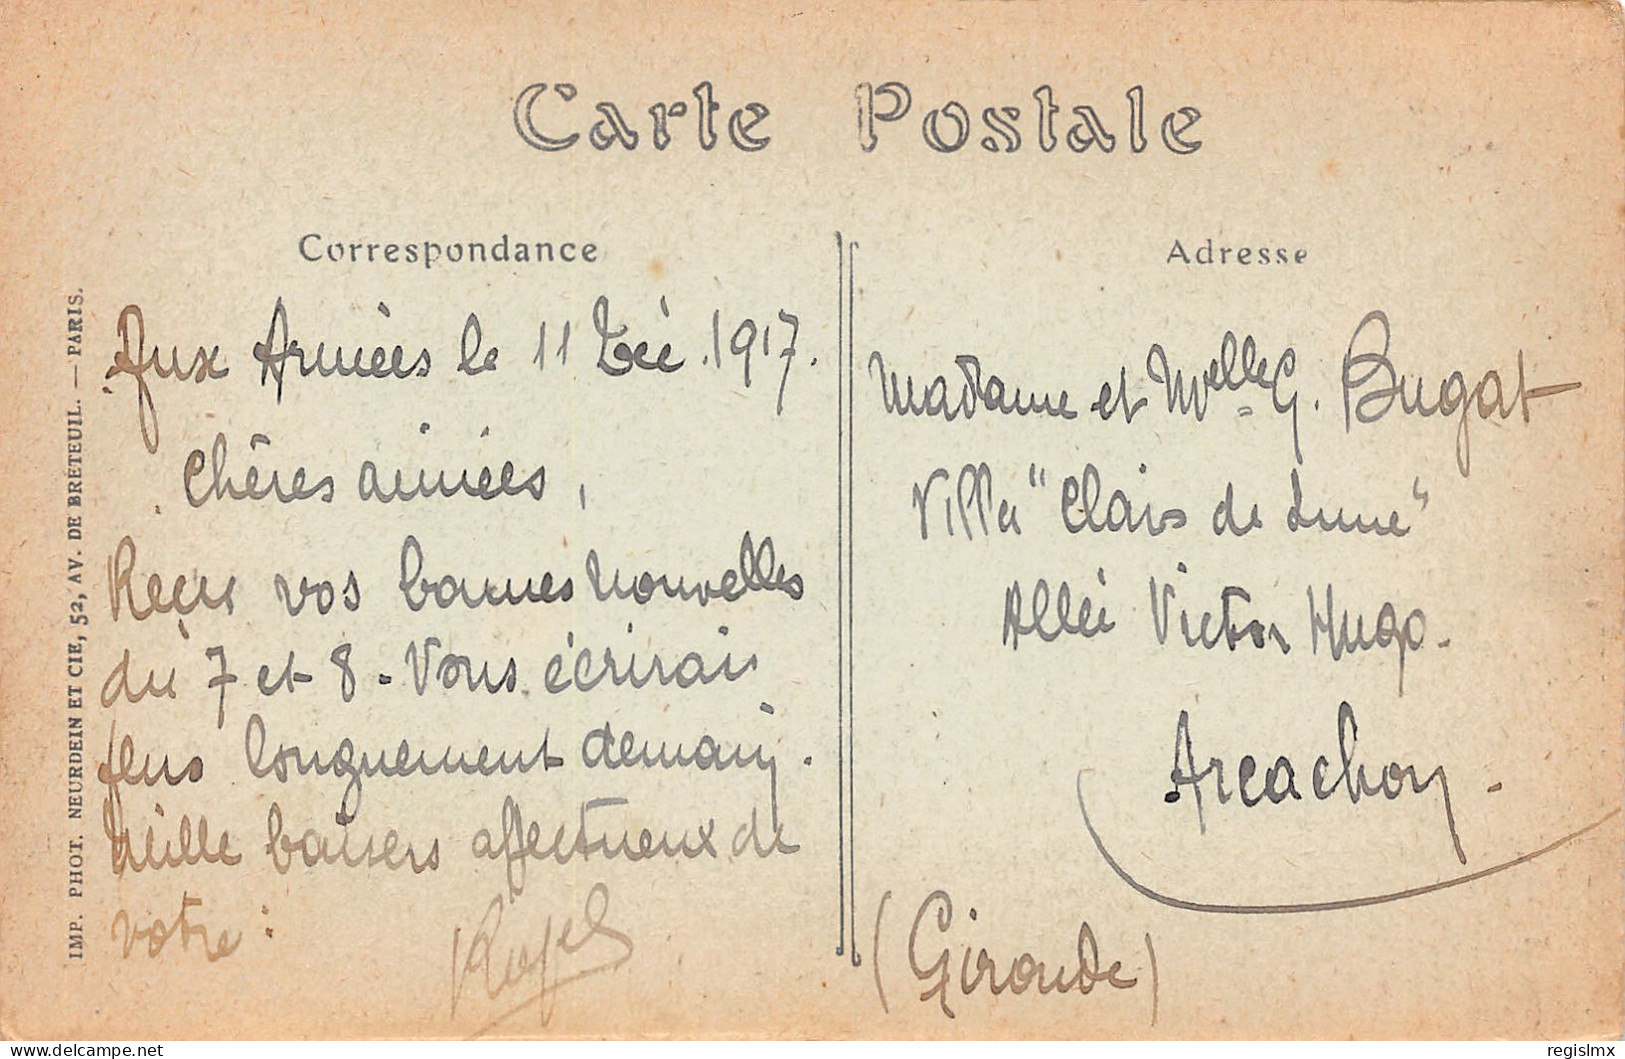 Carte Postale
Correspondance
Aux Armées le 11 Déc. 1917.
Chères aimées,
Reçu vos bonnes nouvelles
du 7 et 8. Vous écrirai
plus longuement demain.
Mille baisers affectueux de
votre :
Adresse
Madame et Melle G. Bugat
Villa "Clair de Lune"
Allée Victor Hugo.
Arcachon.
(Gironde)
IMP. PHOT. NEURDEIN ET CIE, 52, AV. DE BRETEUIL. — PARIS.
delcampe.net
regislmx